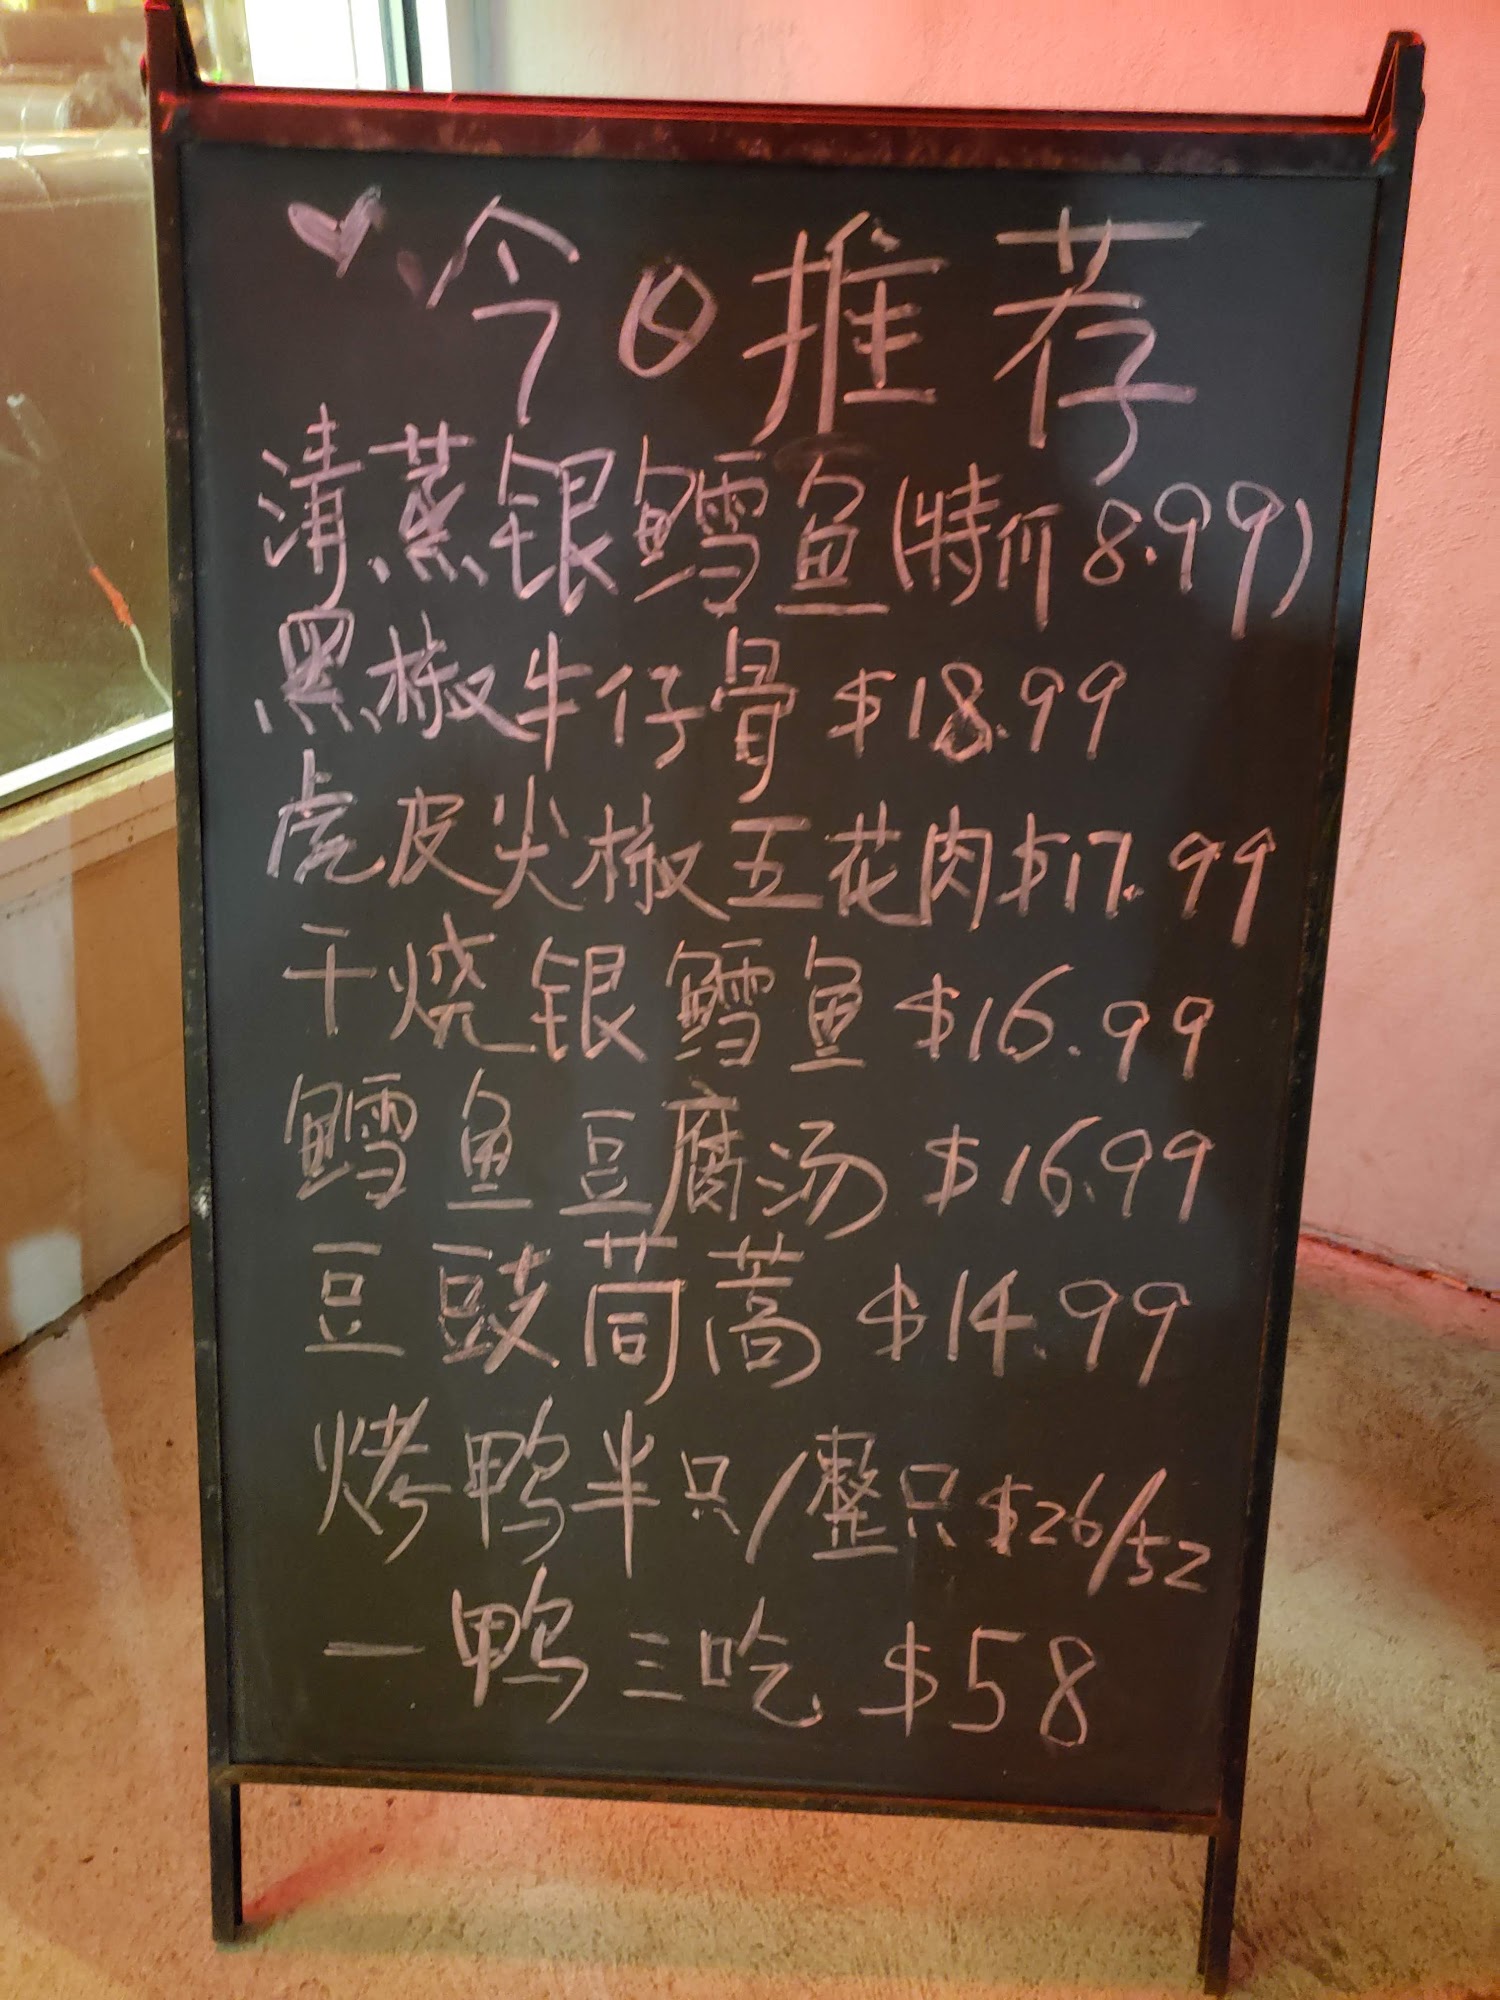 今日推荐
清蒸银鳕鱼(特价8.99)
黑椒牛仔骨 $18.99
虎皮尖椒五花肉$17.99
干烧银鳕鱼 $16.99
鳕鱼豆腐汤 $16.99
豆豉茼蒿 $14.99
烤鸭半只/整只 $26/52
一鸭三吃 $58